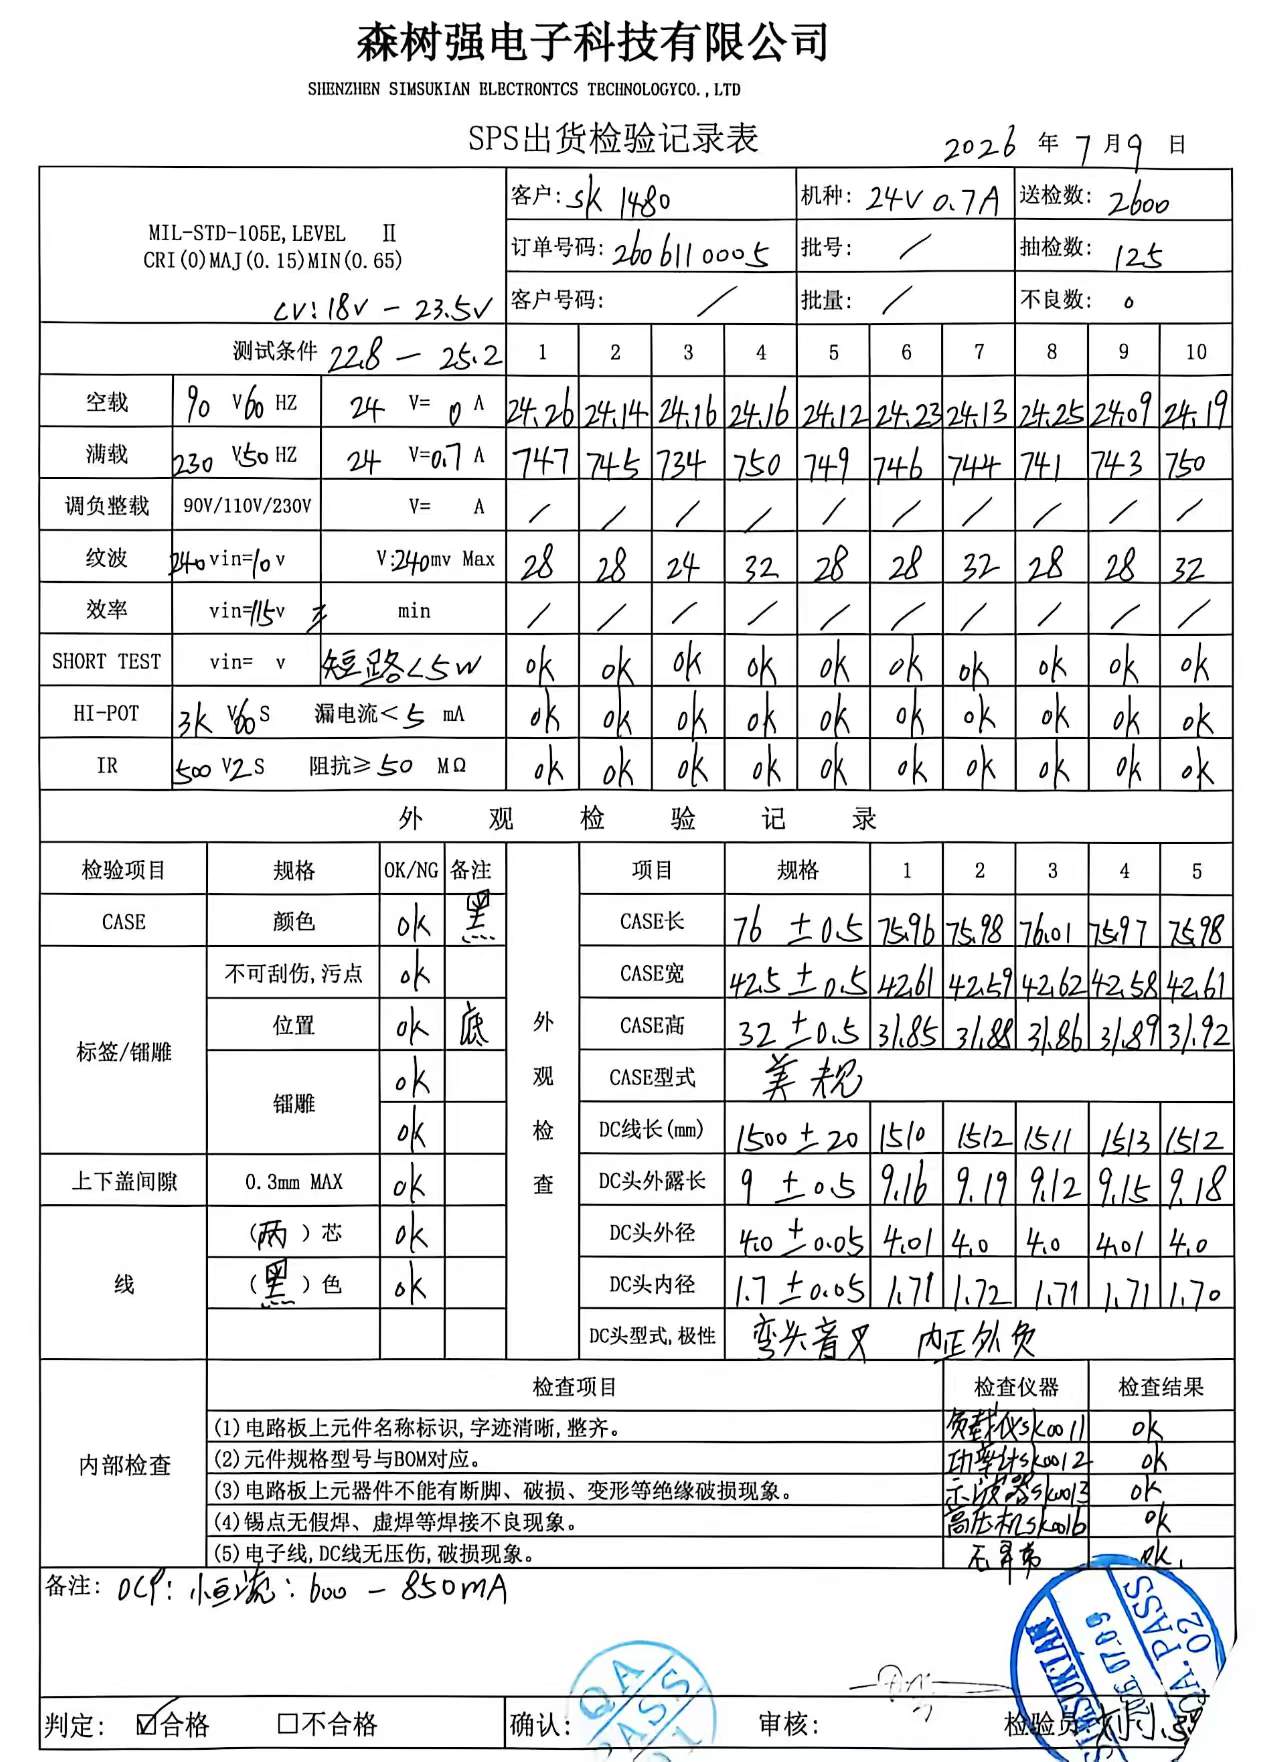 森树强电子科技有限公司
SHENZHEN SIMSUKIAN ELECTRONTCS TECHNOLOGYCO.,LTD
SPS出货检验记录表 2026 年 7 月 9 日
MIL-STD-105E,LEVEL Ⅱ
CRI(0)MAJ(0.15)MIN(0.65)
CV:18V — 23.5V
客户: SK 1480 机种: 24V 0.7A 送检数: 2600
订单号码: 2606110005 批号: / 抽检数: 125
客户号码: / 批量: / 不良数: 0
测试条件 22.8 — 25.2 1 2 3 4 5 6 7 8 9 10
空载 90 V 60 HZ 24 V= 0 A 24.26 24.14 24.16 24.16 24.12 24.23 24.13 24.25 24.09 24.19
满载 230 V 50 HZ 24 V= 0.7 A 747 745 734 750 749 746 744 741 743 750
调负整载 90V/110V/230V V= A / / / / / / / / / /
纹波 240 vin= 10 v V: 240 mv Max 28 28 24 32 28 28 32 28 28 32
效率 vin= 115 v min / / / / / / / / / /
SHORT TEST vin= v 短路<5W ok ok ok ok ok ok ok ok ok ok
HI-POT 3K V 60 S 漏电流< 5 mA ok ok ok ok ok ok ok ok ok ok
IR 500 V 2 S 阻抗≥ 50 MΩ ok ok ok ok ok ok ok ok ok ok
外观检验记录
检验项目 规格 OK/NG 备注 项目 规格 1 2 3 4 5
CASE 颜色 ok 黑 CASE长 76 ±0.5 75.96 75.98 76.01 75.97 75.98
标签/镭雕 不可刮伤,污点 ok CASE宽 42.5 ±0.5 42.61 42.59 42.62 42.58 42.61
位置 ok 底 CASE高 32 ±0.5 31.85 31.88 31.86 31.89 31.92
镭雕 ok CASE型式 美规
ok DC线长(mm) 1500 ±20 1510 1512 1511 1513 1512
外观检查
上下盖间隙 0.3mm MAX ok DC头外露长 9 ±0.5 9.16 9.19 9.12 9.15 9.18
线 (两)芯 ok DC头外径 4.0 ±0.05 4.01 4.0 4.0 4.01 4.0
(黑)色 ok DC头内径 1.7 ±0.05 1.71 1.72 1.71 1.71 1.70
DC头型式,极性 弯头音叉 内正外负
内部检查 检查项目 检查仪器 检查结果
(1)电路板上元件名称标识,字迹清晰,整齐。 负载仪SK0011 ok
(2)元件规格型号与BOM对应。 功率计SK0012 ok
(3)电路板上元器件不能有断脚、破损、变形等绝缘破损现象。 示波器SK0013 ok
(4)锡点无假焊、虚焊等焊接不良现象。 高压机SK0016 ok
(5)电子线,DC线无压伤,破损现象。 无异常 ok
备注: OCP:恒流:600 — 850mA
QA
PASS
SIMSUKIAN
QA.PASS
02
判定: ☑合格 □不合格 确认: 审核: 检验员: